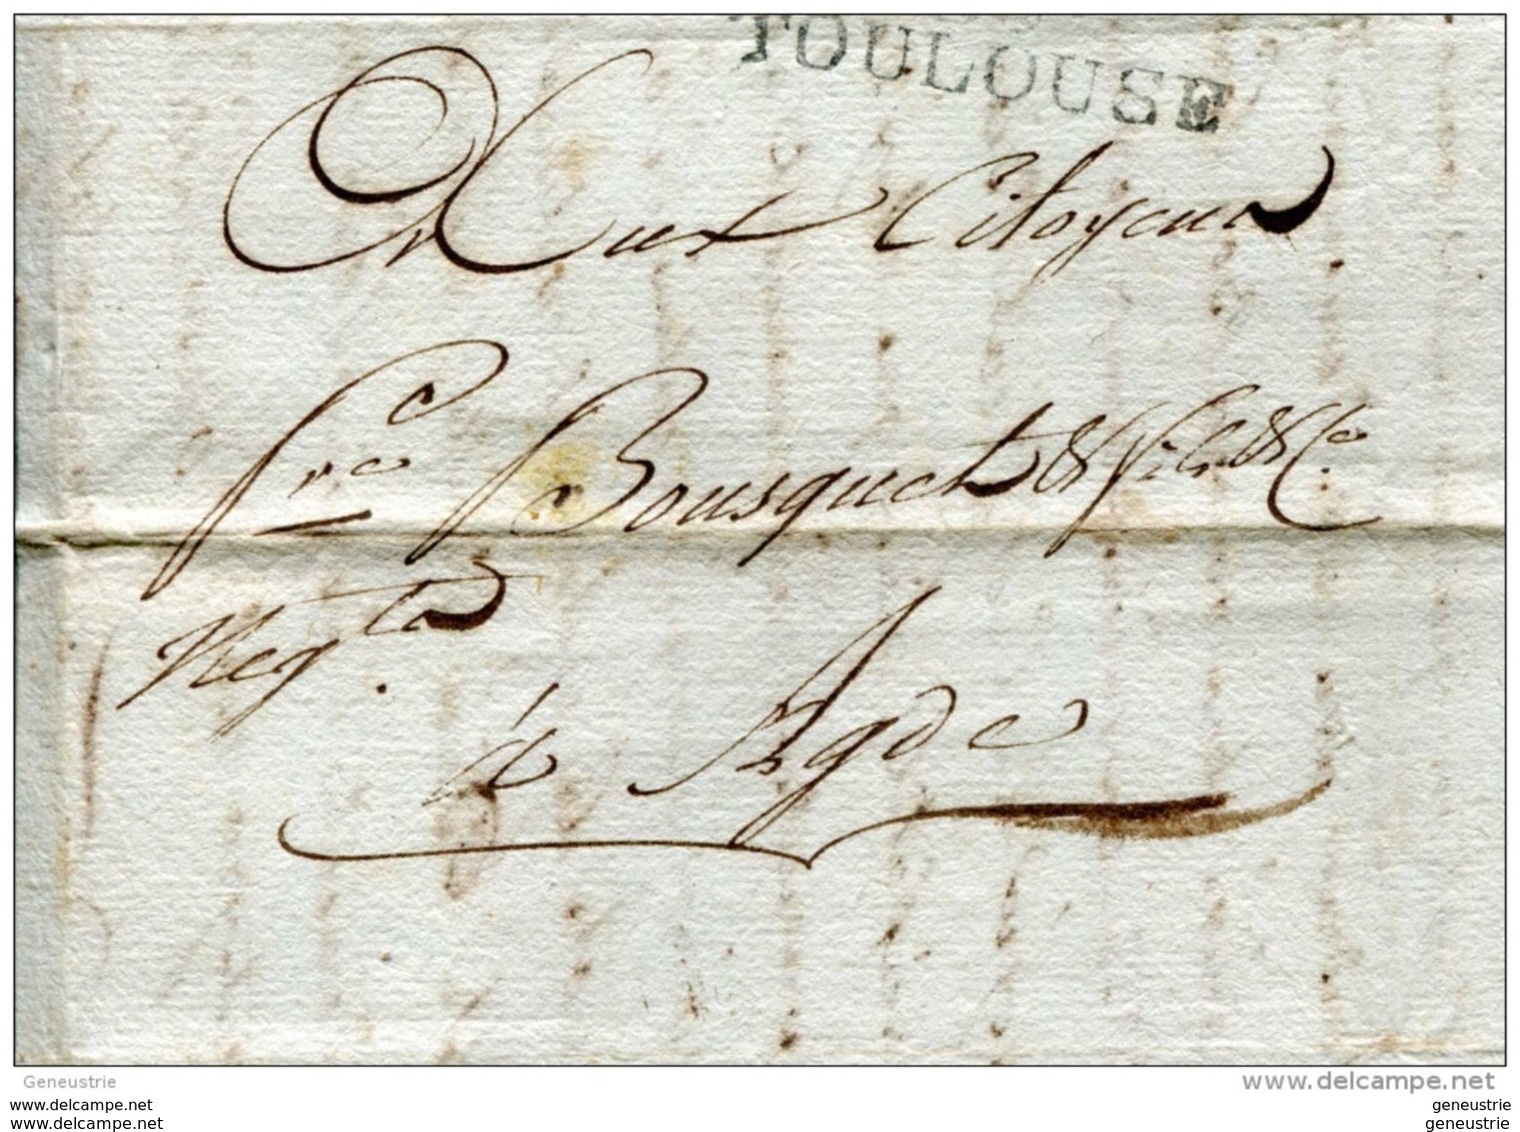 TOULOUSE
Aux Citoyens
frc Bousquet & fils & Co
Negts.
à Agde
Geneustrie
www.delcampe.com
www.delcampe.com
www.delcampe.net
geneustrie
geneustrie